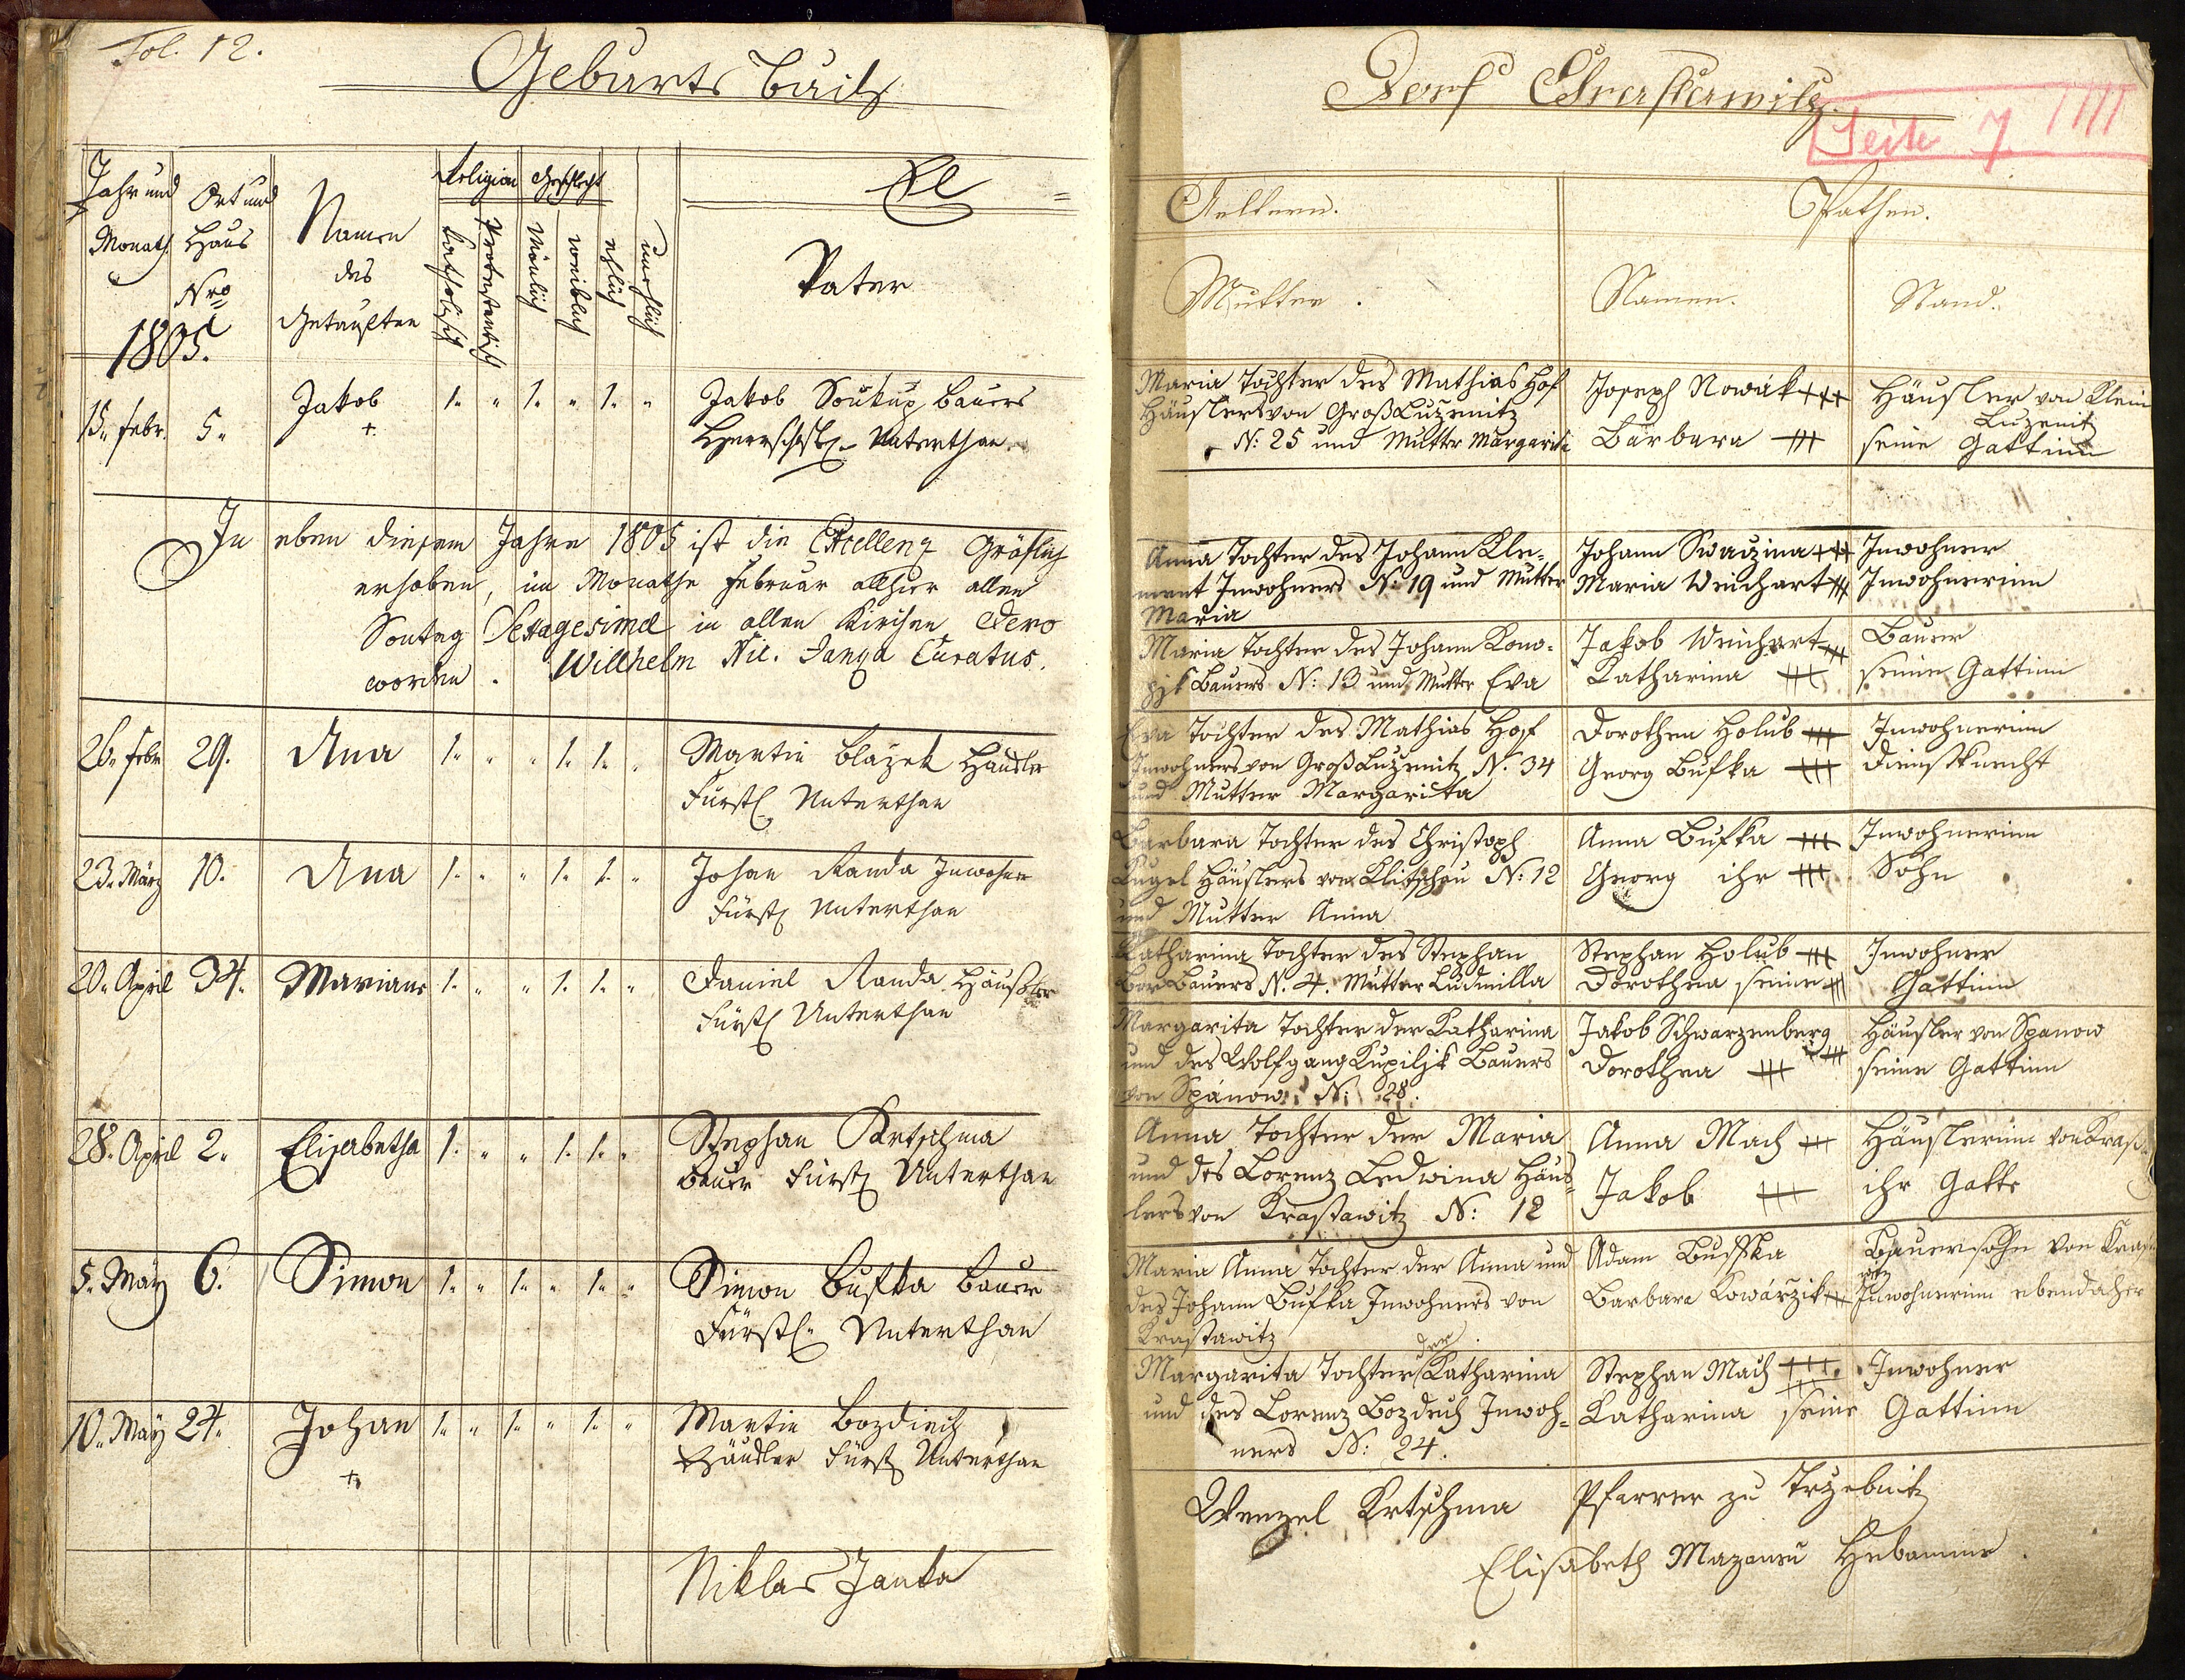 Fol. 12.
Geburts buch
Jahr und
Monath
1805.
Ort und
Haus
Nro
Namen
des
Getauften
Religion
katholisch
protestantisch
Geschlecht
Mänlich
weiblich
ehlich
unehlich
El =
Vater
15. febr. 5. Jakob + 1. " 1. " 1. " Jakob Soukup Bauers
Herrschftl. Unterthan.
In eben diesem Jahre 1805 ist die Excellenz Gräflich
erhoben, im Monathe Februar allhier allen
Sontag Sexagesima in allen Kirchen Dero
worden. Willhelm Nic. Janka Curatus.
26. febr. 29. Ana 1. " " 1. 1. " Martin Blažek Häusler
Fürstl. Unterthan
23. März 10. Ana 1. " " 1. 1. " Johan Randa Inwohner
Fürstl. Unterthan
20. April 34. Mariana 1. " " 1. 1. " Daniel Randa Häusler
Fürstl. Unterthan
28. April 2. Elisabetha 1. " " 1. 1. " Stephan Krtschma
Bauer Fürstl. Unterthan
5. May 6. Simon 1. " 1. " 1. " Simon Bufka Bauer
Fürstl. Unterthan
10. May 24. Johan + 1. " 1. " 1. " Martin Bozdiech
Häusler Fürstl. Unterthan
Niklas Janka
Dorf Chrastawitz.
Seite 7
Aeltern.
Pathen.
Mutter.
Namen.
Stand.
Maria Tochter des Mathias Hof
Häuslers von Groß Luženitz
N: 25 und Mutter Margarita
Joseph Nowák +++
Barbara +++
Häusler von Klein
Luženitz
seine Gattinn
Anna Tochter des Johann Kle-
ment Inwohners N: 19 und Mutter
Maria
Johann Swaczina +++
Maria Weichart +++
Inwohner
Inwohnerinn
Maria Tochter des Johann Kono-
pjk Bauers N: 13 und Mutter Eva
Jakob Weichart +++
Katharina +++
Bauer
seine Gattinn
Eva Tochter des Mathias Hof
Inwohners von Groß Luženitz N. 34
und Mutter Margarita
Dorothea Holub +++
Georg Bufka +++
Inwohnerinn
Dienstknecht
Barbara Tochter des Christoph
Kugel Häuslers von Klitschau N: 12
und Mutter Anna
Anna Bufka +++
Georg ihr +++
Inwohnerinn
Sohn
Katharina Tochter des Stephan
Bor Bauers N. 4. Mutter Ludmilla
Stephan Holub +++
Dorothea seine +++
Inwohner
Gattinn
Margarita Tochter der Katharina
und des Wolfgang Kupiljk Bauers
von Spanow N: 28.
Jakob Schwarzenberg +++
Dorothea +++
Häusler von Spanow
seine Gattinn
Anna Tochter der Maria
und des Lorenz Ledwina Häus-
lers von Krastawitz N: 12
Anna Mach +++
Jakob +++
Häuslerinn von Krast
ihr Gatte
Maria Anna Tochter der Anna und
des Johann Bufka Inwohners von
Krastawitz
Adam Buffka
Barbara Kowárzik +++
Bauersohn von Krast
witz
Inwohnerinn ebendaher
Margarita Tochter der Katharina
und des Lorenz Bozdech Inwoh-
ners N: 24.
Stephan Mach +++.
Katharina seine
Inwohner
Gattinn
Wenzel Krtschma Pfarrer zu Trzebnitz
Elisabeth Mazaneu Hebamme.